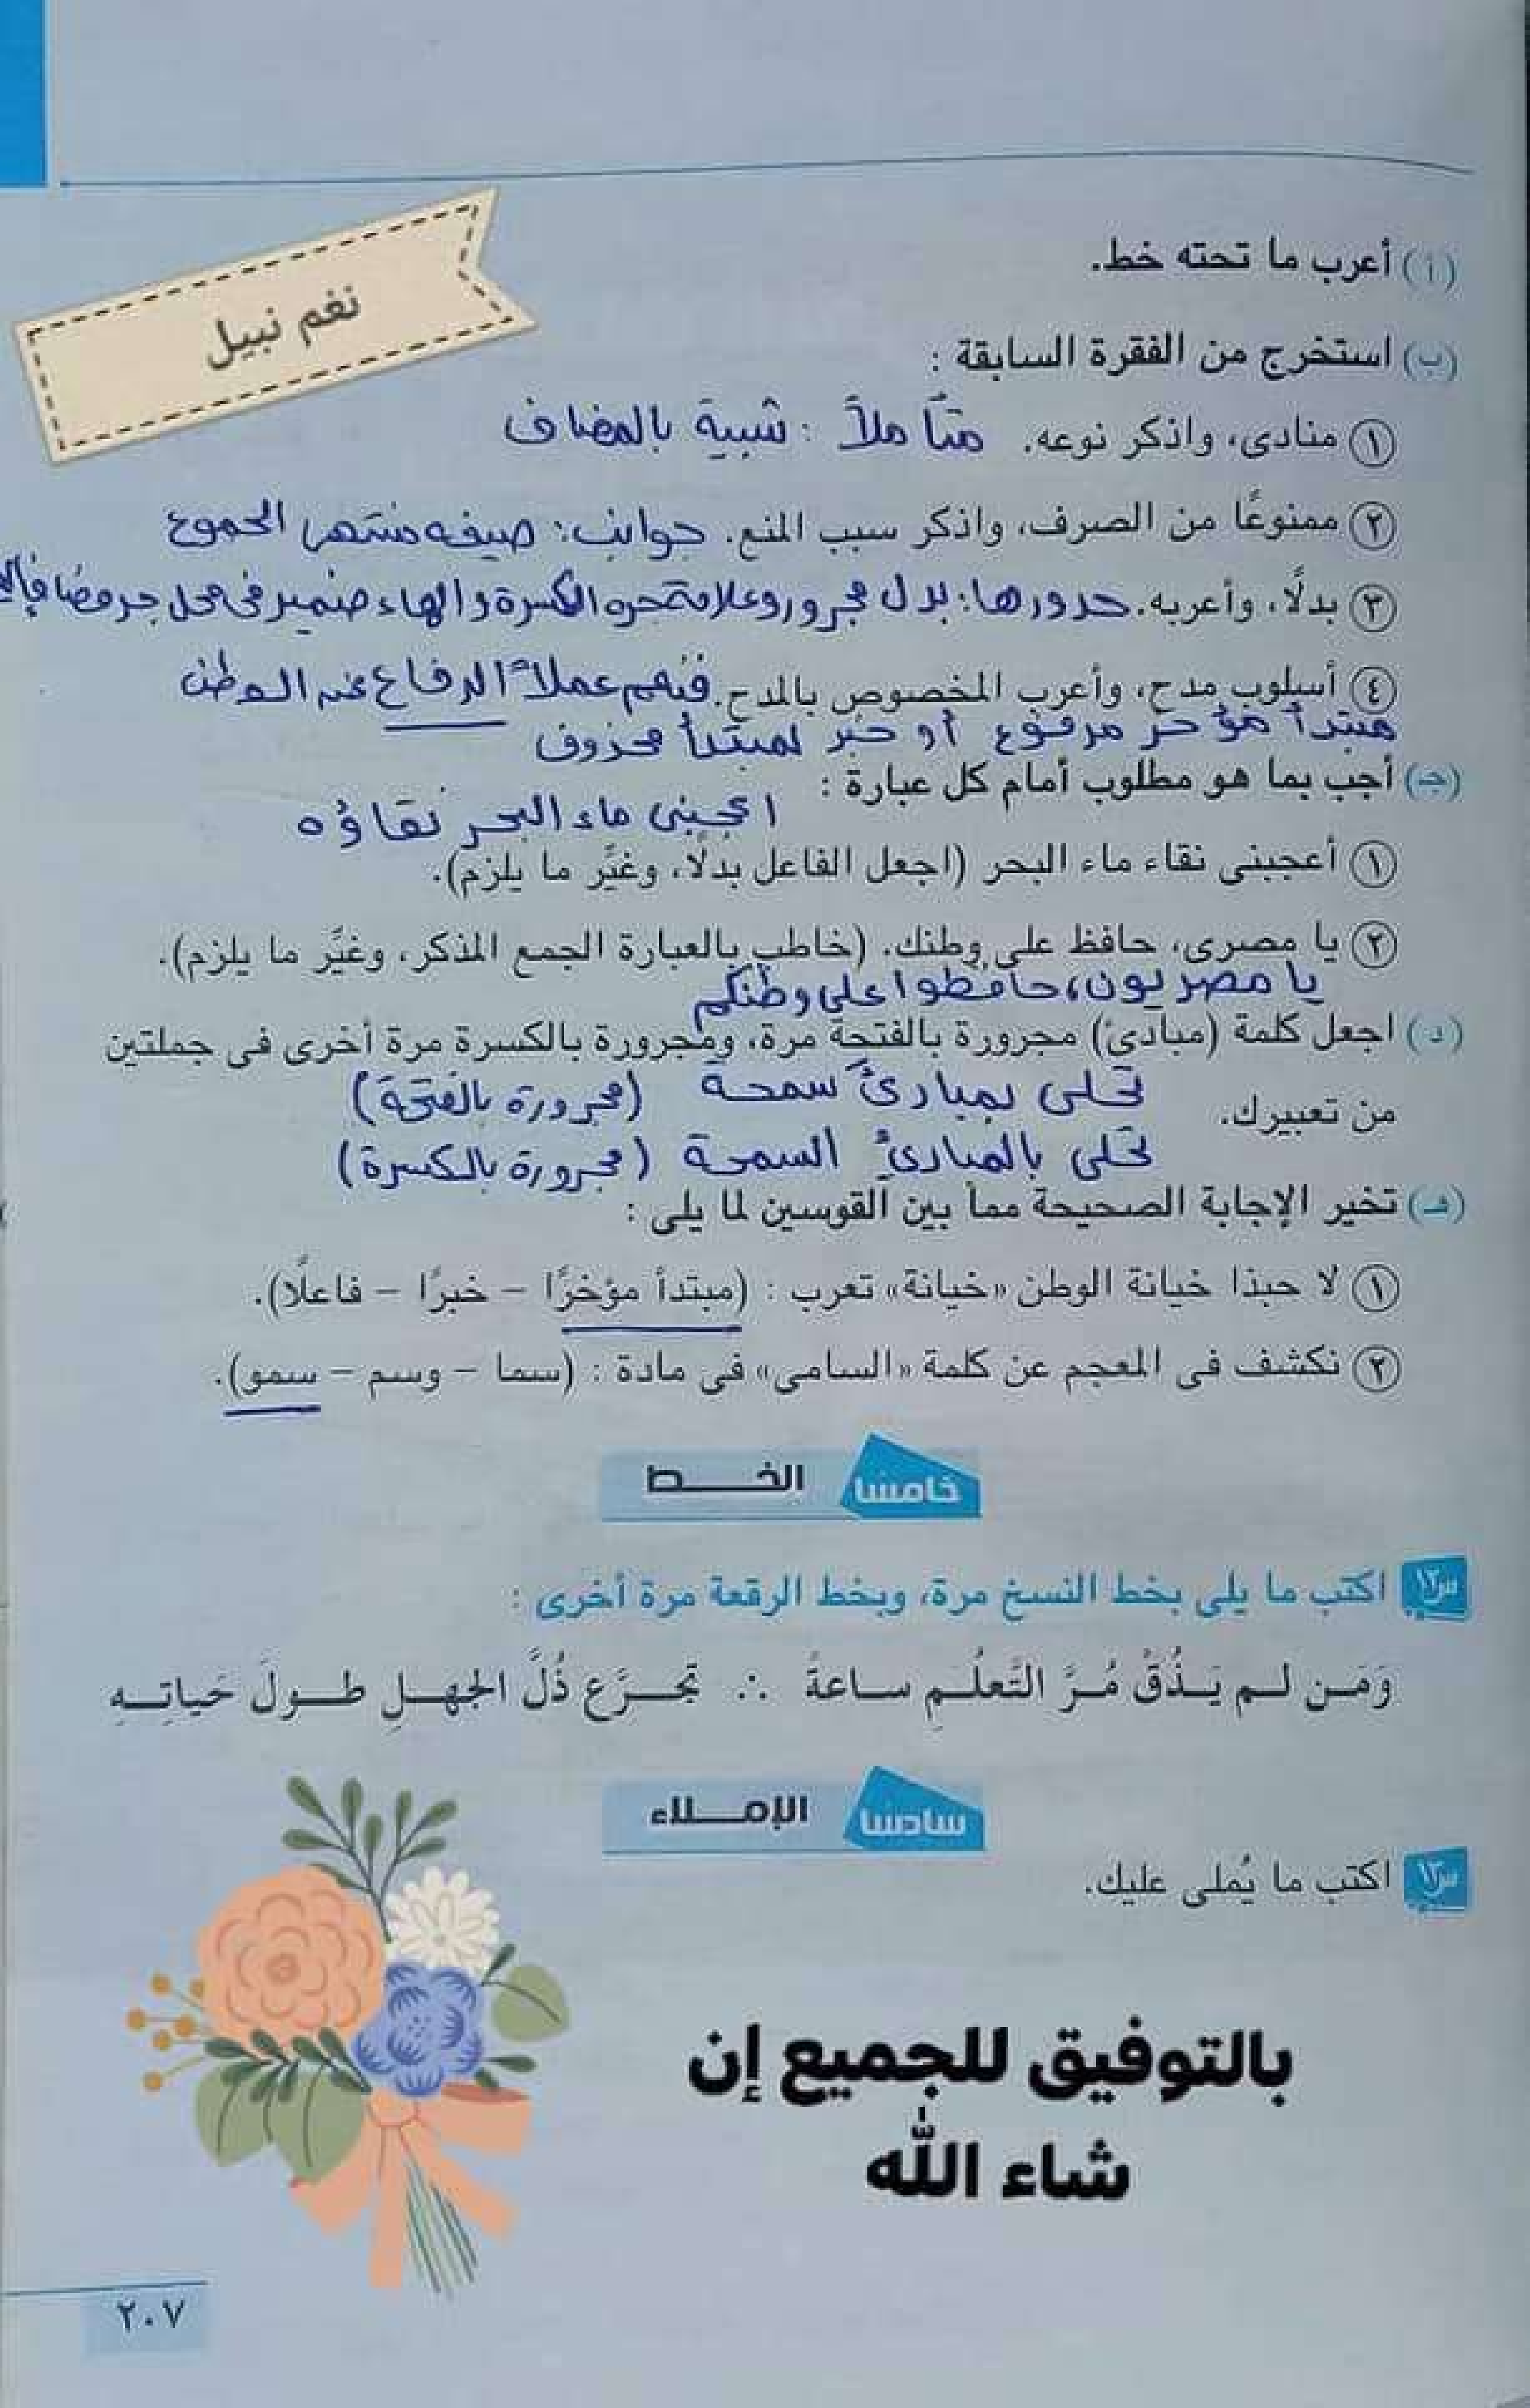 نغم نبيل
(أ) أعرب ما تحته خط.
(ب) استخرج من الفقرة السابقة :
١ منادى، واذكر نوعه. متأملاً : شبية بالمضاف
٢ ممنوعًا من الصرف، واذكر سبب المنع. جوانب: صيغه منتهى الجموع
٣ بدلًا، وأعربه. جدورها: بدل مجرور وعلامة جره الكسرة والهاء ضمير فى محل جر مضاف
٤ أسلوب مدح، وأعرب المخصوص بالمدح. فنعم عملاً الدفاع عن الوطن
مبتدأ مؤخر مرفوع أو خبر لمبتدأ محزوف
(جـ) أجب بما هو مطلوب أمام كل عبارة :
اعجبنى ماء البحر نقاؤه
١ أعجبنى نقاء ماء البحر (اجعل الفاعل بدلًا، وغيِّر ما يلزم).
٢ يا مصرى، حافظ على وطنك. (خاطب بالعبارة الجمع المذكر، وغيِّر ما يلزم).
يا مصريون، حافظوا على وطنكم
(د) اجعل كلمة (مبادئ) مجرورة بالفتحة مرة، ومجرورة بالكسرة مرة أخرى فى جملتين
من تعبيرك. تحلى بمبادئَ سمحة (مجرورة بالفتحة)
تحلى بالمبادئِ السمحة (مجرورة بالكسرة)
(هـ) تخير الإجابة الصحيحة مما بين القوسين لما يلى :
١ لا حبذا خيانة الوطن «خيانة» تعرب : (مبتدأ مؤخرًا – خبرًا – فاعلًا).
٢ نكشف فى المعجم عن كلمة «السامى» فى مادة : (سما – وسم – سمو).
خامسًا الخـــط
س١٢ اكتب ما يلى بخط النسخ مرة، وبخط الرقعة مرة أخرى :
وَمَـن لـم يَـذُقْ مُـرَّ التَّعلُـمِ سـاعةً ∴ تجـرَّع ذُلَّ الجهـلِ طـولَ حَياتِـهِ
سادسًا الإمـــلاء
س١٣ اكتب ما يُملى عليك.
بالتوفيق للجميع إن
شاء الله
٢٠٧